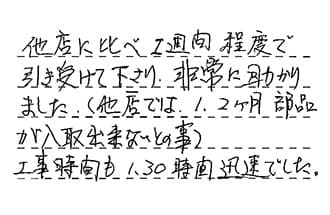 他店に比べ1週間程度で
引き受けて下さり、非常に助かり
ました。(他店では、1、2ヶ月部品
が入取出来ないとの事)
工事時間も1.30時間迅速でした。